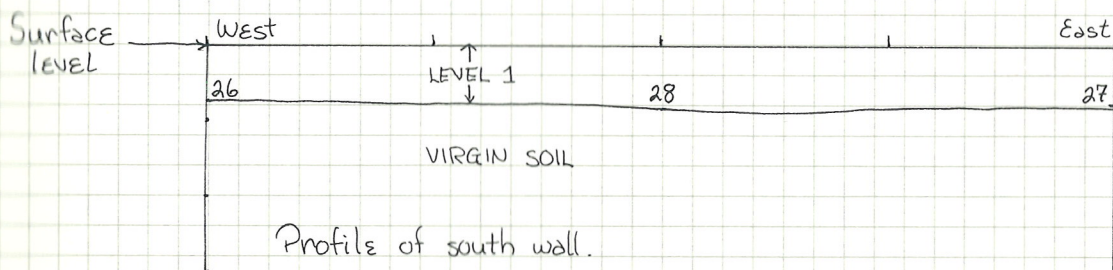 Surface
level
West
East
LEVEL 1
26
28
27
VIRGIN SOIL
Profile of south wall.